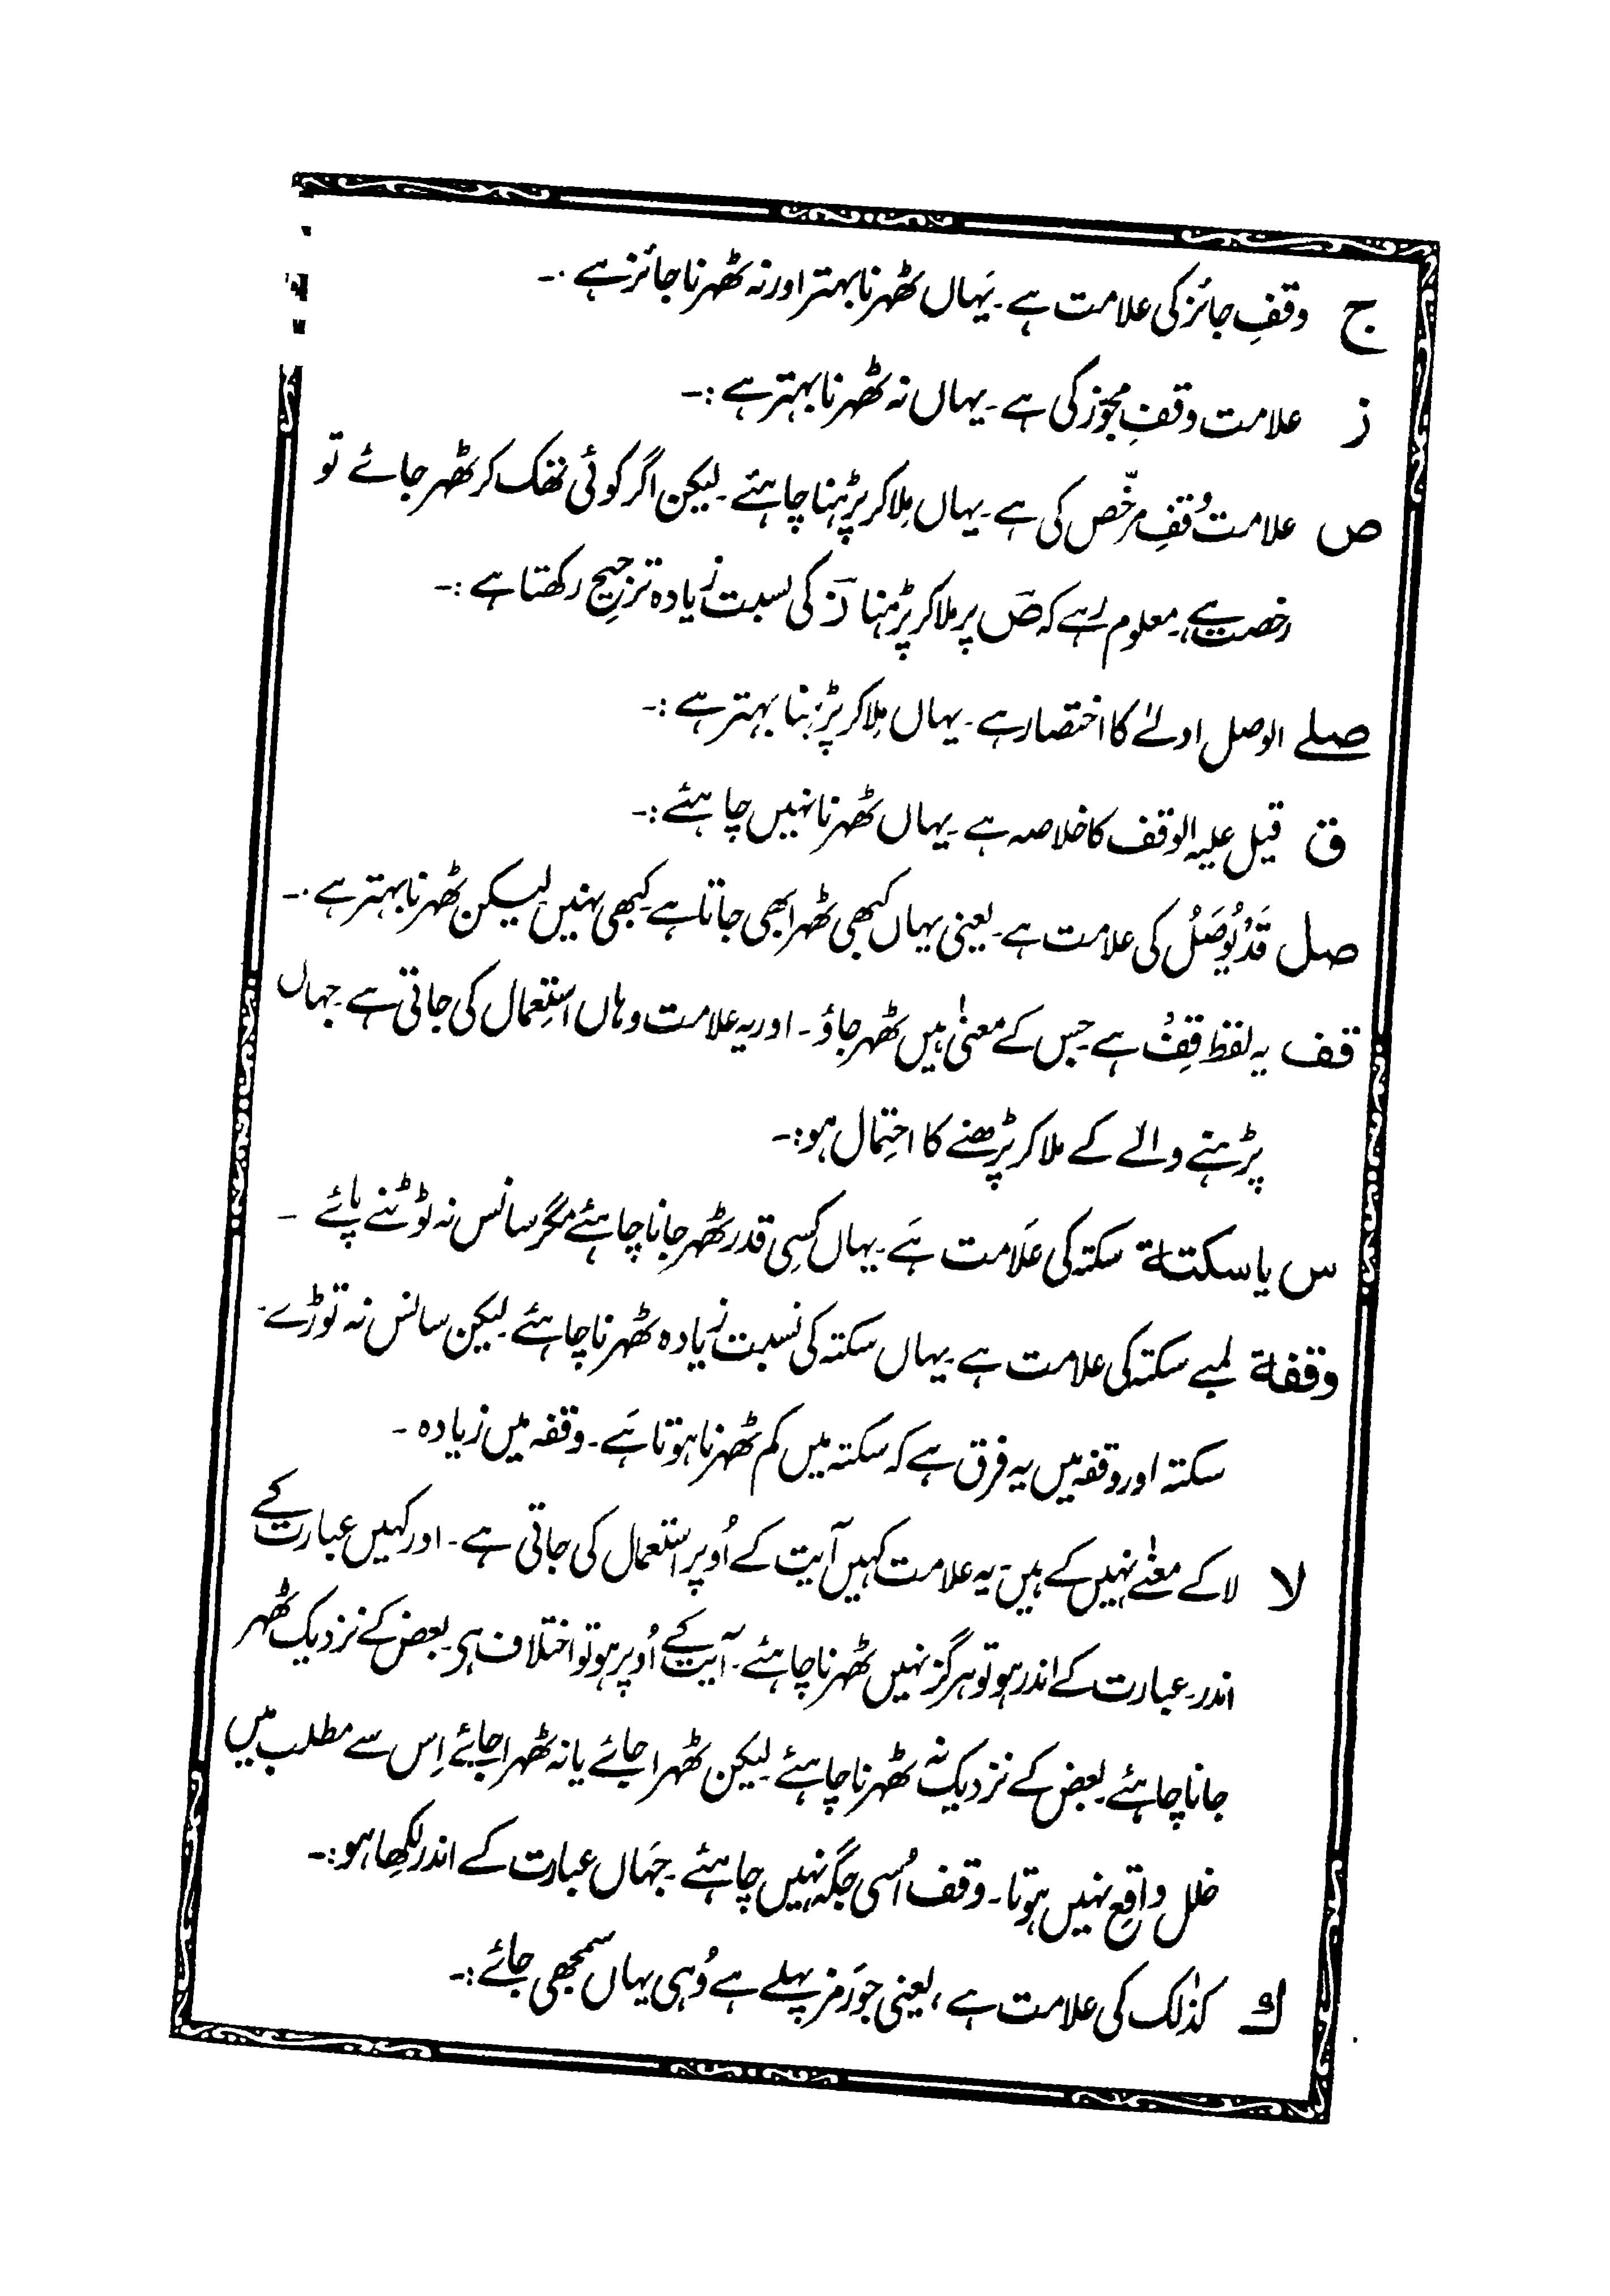 ج وقفِ جائز کی علامت ہے۔ یَہاں ٹھہرنا بہتر اور نہ ٹھہرنا جائز ہے :۔
ز علامت وقفِ مجوّز کی ہے۔ یہاں نہ ٹھہرنا بہتر ہے :۔
ص علامت وُقفِ مرخّص کی ہے۔ یہاں مِلا کر پڑہنا چاہئے۔ لیکن اگر کوئی تھک کر ٹھہر جائے تو
رخصت ہے۔ معلوم رہے کہ صؔ پر ملا کر پڑہنا زؔ کی نسبت زیادہ ترجیح رکھتا ہے :۔
صلے الوصل اولےٰ کا اختصار ہے۔ یہاں مِلا کر پڑہنا بہتر ہے :۔
ق قیل علیہ الوقف کا خلاصہ ہے۔ یہاں ٹھہرنا نہیں چاہئے :۔
صل قَدْ یُوصَلُ کی علامت ہے۔ یعنی یہاں کبھی ٹھہرا بھی جاتا ہے۔ کبھی نہیں۔ لیکن ٹھہرنا بہتر ہے :۔
قف یہ لفظ قِفْ ہے جس کے معنیٰ ہیں ٹھہر جاؤ۔ اور یہ علامت وہاں استِعمال کی جاتی ہے۔ جہاں
پڑہنے والے کے ملا کر پڑھنے کا احتِمال ہو :۔
س یا سکتة سکتہ کی عَلامت ہَے۔ یہاں کسِی قدر ٹھہر جانا چاہئے مگر سانس نہ ٹوٹنے پائے ۔
وقفة لمبے سکتہ کی علامت ہے۔ یہاں سکتہ کی نسبت زیادہ ٹھہرنا چاہئے۔ لیکن سانس نہ توڑے۔
سکتہ اور وقفہ میں یہ فرق ہے کہ سکتہ میں کم ٹھہرنا ہوتا ہَے۔ وقفہ میں زیادہ ۔
لا لا کے معنےٰ نہیں کے ہیں۔ یہ علامت کہیں آیت کے اُوپر استعمال کی جاتی ہے۔ اور کہیں عبارت کے
اندر۔ عبارت کے اندر ہو تو ہرگز نہیں ٹھہرنا چاہئے۔ آیت کے اُوپر ہو تو اختلاف ہی۔ بعض کے نزدیک ٹھہر
جانا چاہئے بعض کے نزدیک نہ ٹھہرنا چاہئے۔ لیکن ٹھہرا جائے یا نہ ٹھہرا جائے اِس سے مطلب میں
خلل واقِع نہیں ہوتا۔ وقف اُسی جگہ نہیں چاہئے۔ جہَاں عبارت کے اندر لکِھا ہو :۔
ك کذٰلک کی علامت ہے، یعنی جو رَمز پہلے ہے وُہی یہاں سمجھی جائے :۔